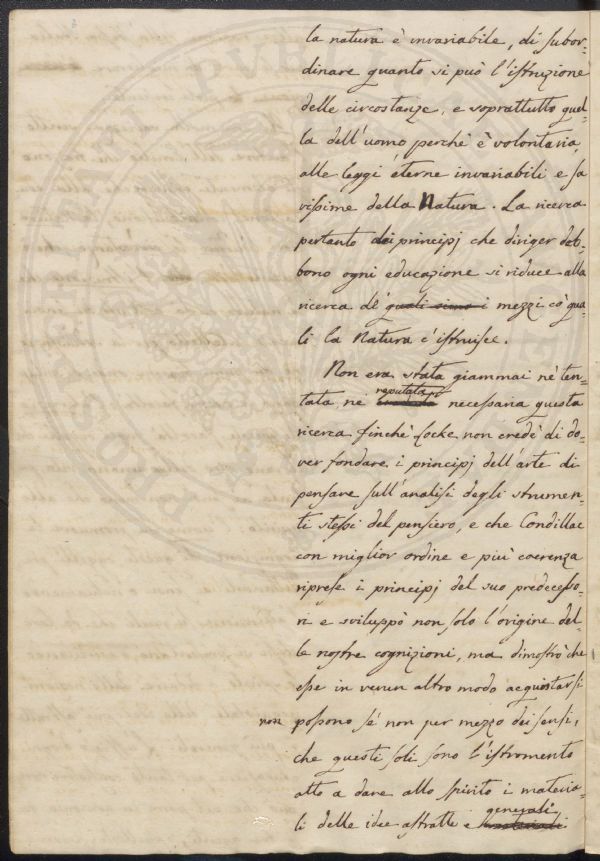 la natura è invariabile, di subor=
dinare quanto si può l'istruzione
delle circostanze, e soprattutto quel=
la dell'uomo perchè è volontaria,
alle leggi eterne invariabili e sa
vissime della Natura. La ricerca
pertanto dei principj che diriger deb=
bono ogni educazione si riduce alla
ricerca de' quali sono i mezzi co' qua=
li la Natura c'istruisce.
Non era stata giammai nè ten=
tata, nè reputata necessaria questa
ricerca finchè Locke non credè di do=
ver fondare i principj dell'arte di
pensare sull'analisi degli strumen=
ti stessi del pensiero, e che Condillac
con miglior ordine e più coerenza
riprese i principj del suo predecesso=
re e sviluppò non solo l'origine del=
le nostre cognizioni, ma dimostrò che
esse in verun altro modo acquistarsi
non possono se non per mezzo dei sensi,
che questi soli sono l'istromento
atto a dare allo spirito i materia=
li delle idee astratte e generali